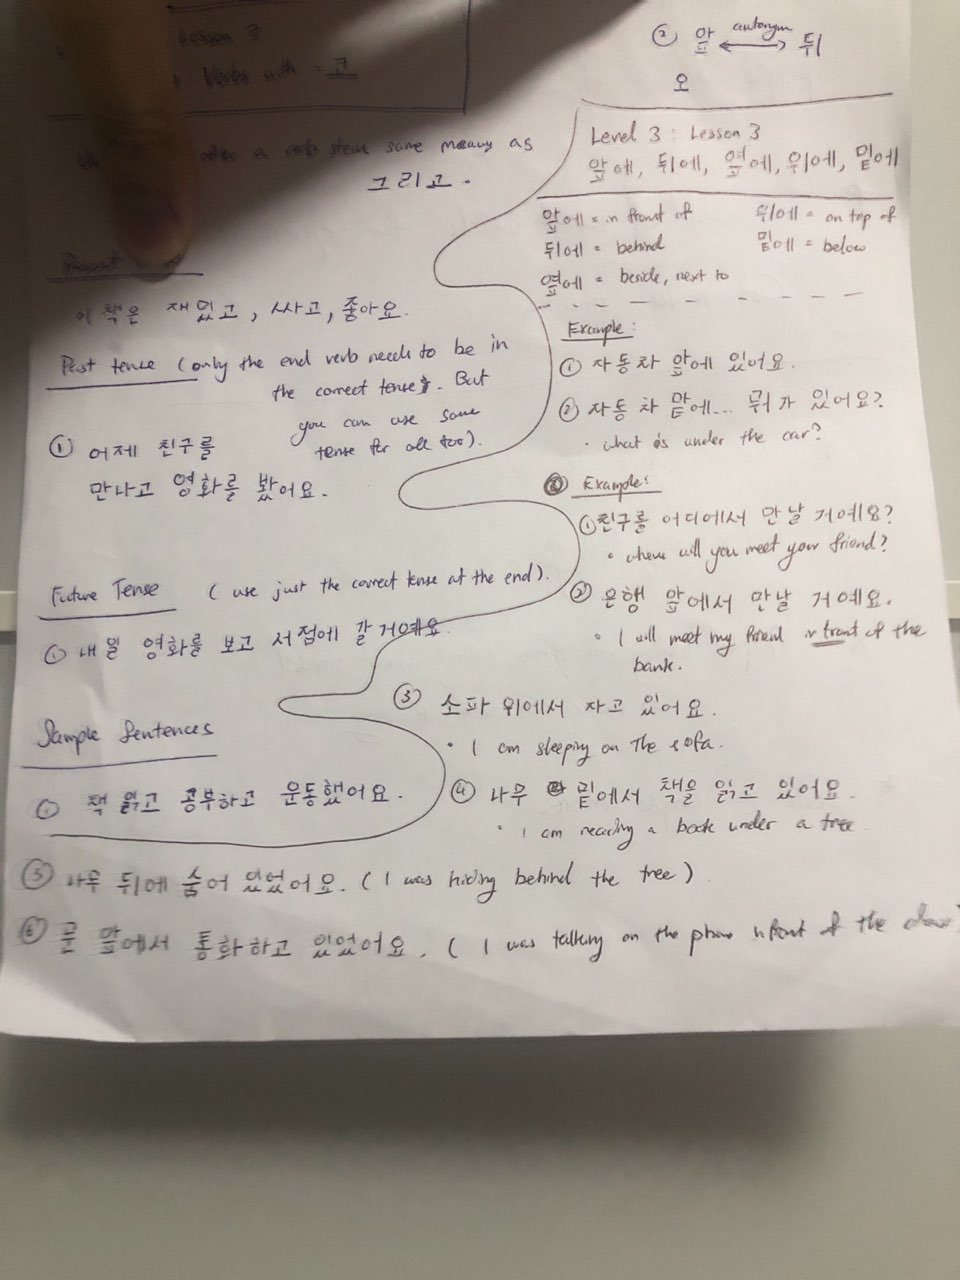 Lesson
Verbs with - 고
a verb stem same meaning as
그리고.
이 책은 재밌고, 싸고, 좋아요.
Past tense (only the end verb needs to be in
the correct tense. But
you can use same
tense for all too).
① 어제 친구를
만나고 영화를 봤어요.
Future Tense (use just the correct tense at the end).
① 내일 영화를 보고 서점에 갈 거예요
Sample Sentences
① 책 읽고 공부하고 운동했어요.
② 앞 ↔ 뒤
오
Level 3 : Lesson 3
앞에, 뒤에, 옆에, 위에, 밑에
앞에 = in front of
위에 = on top of
뒤에 = behind
밑에 = below
옆에 = beside, next to
Example:
① 자동차 앞에 있어요.
② 자동차 밑에... 뭐가 있어요?
• what is under the car?
Example:
① 친구를 어디에서 만날 거예요?
• where will you meet your friend?
② 은행 앞에서 만날 거예요.
• I will meet my friend in front of the
bank.
③ 소파 위에서 자고 있어요.
• I am sleeping on The sofa.
④ 나무 밑에서 책을 읽고 있어요.
• I am reading a book under a tree
⑤ 나무 뒤에 숨어 있었어요. (I was hiding behind the tree)
⑥ 문 앞에서 통화하고 있었어요. (I was talking on the phone infront of the